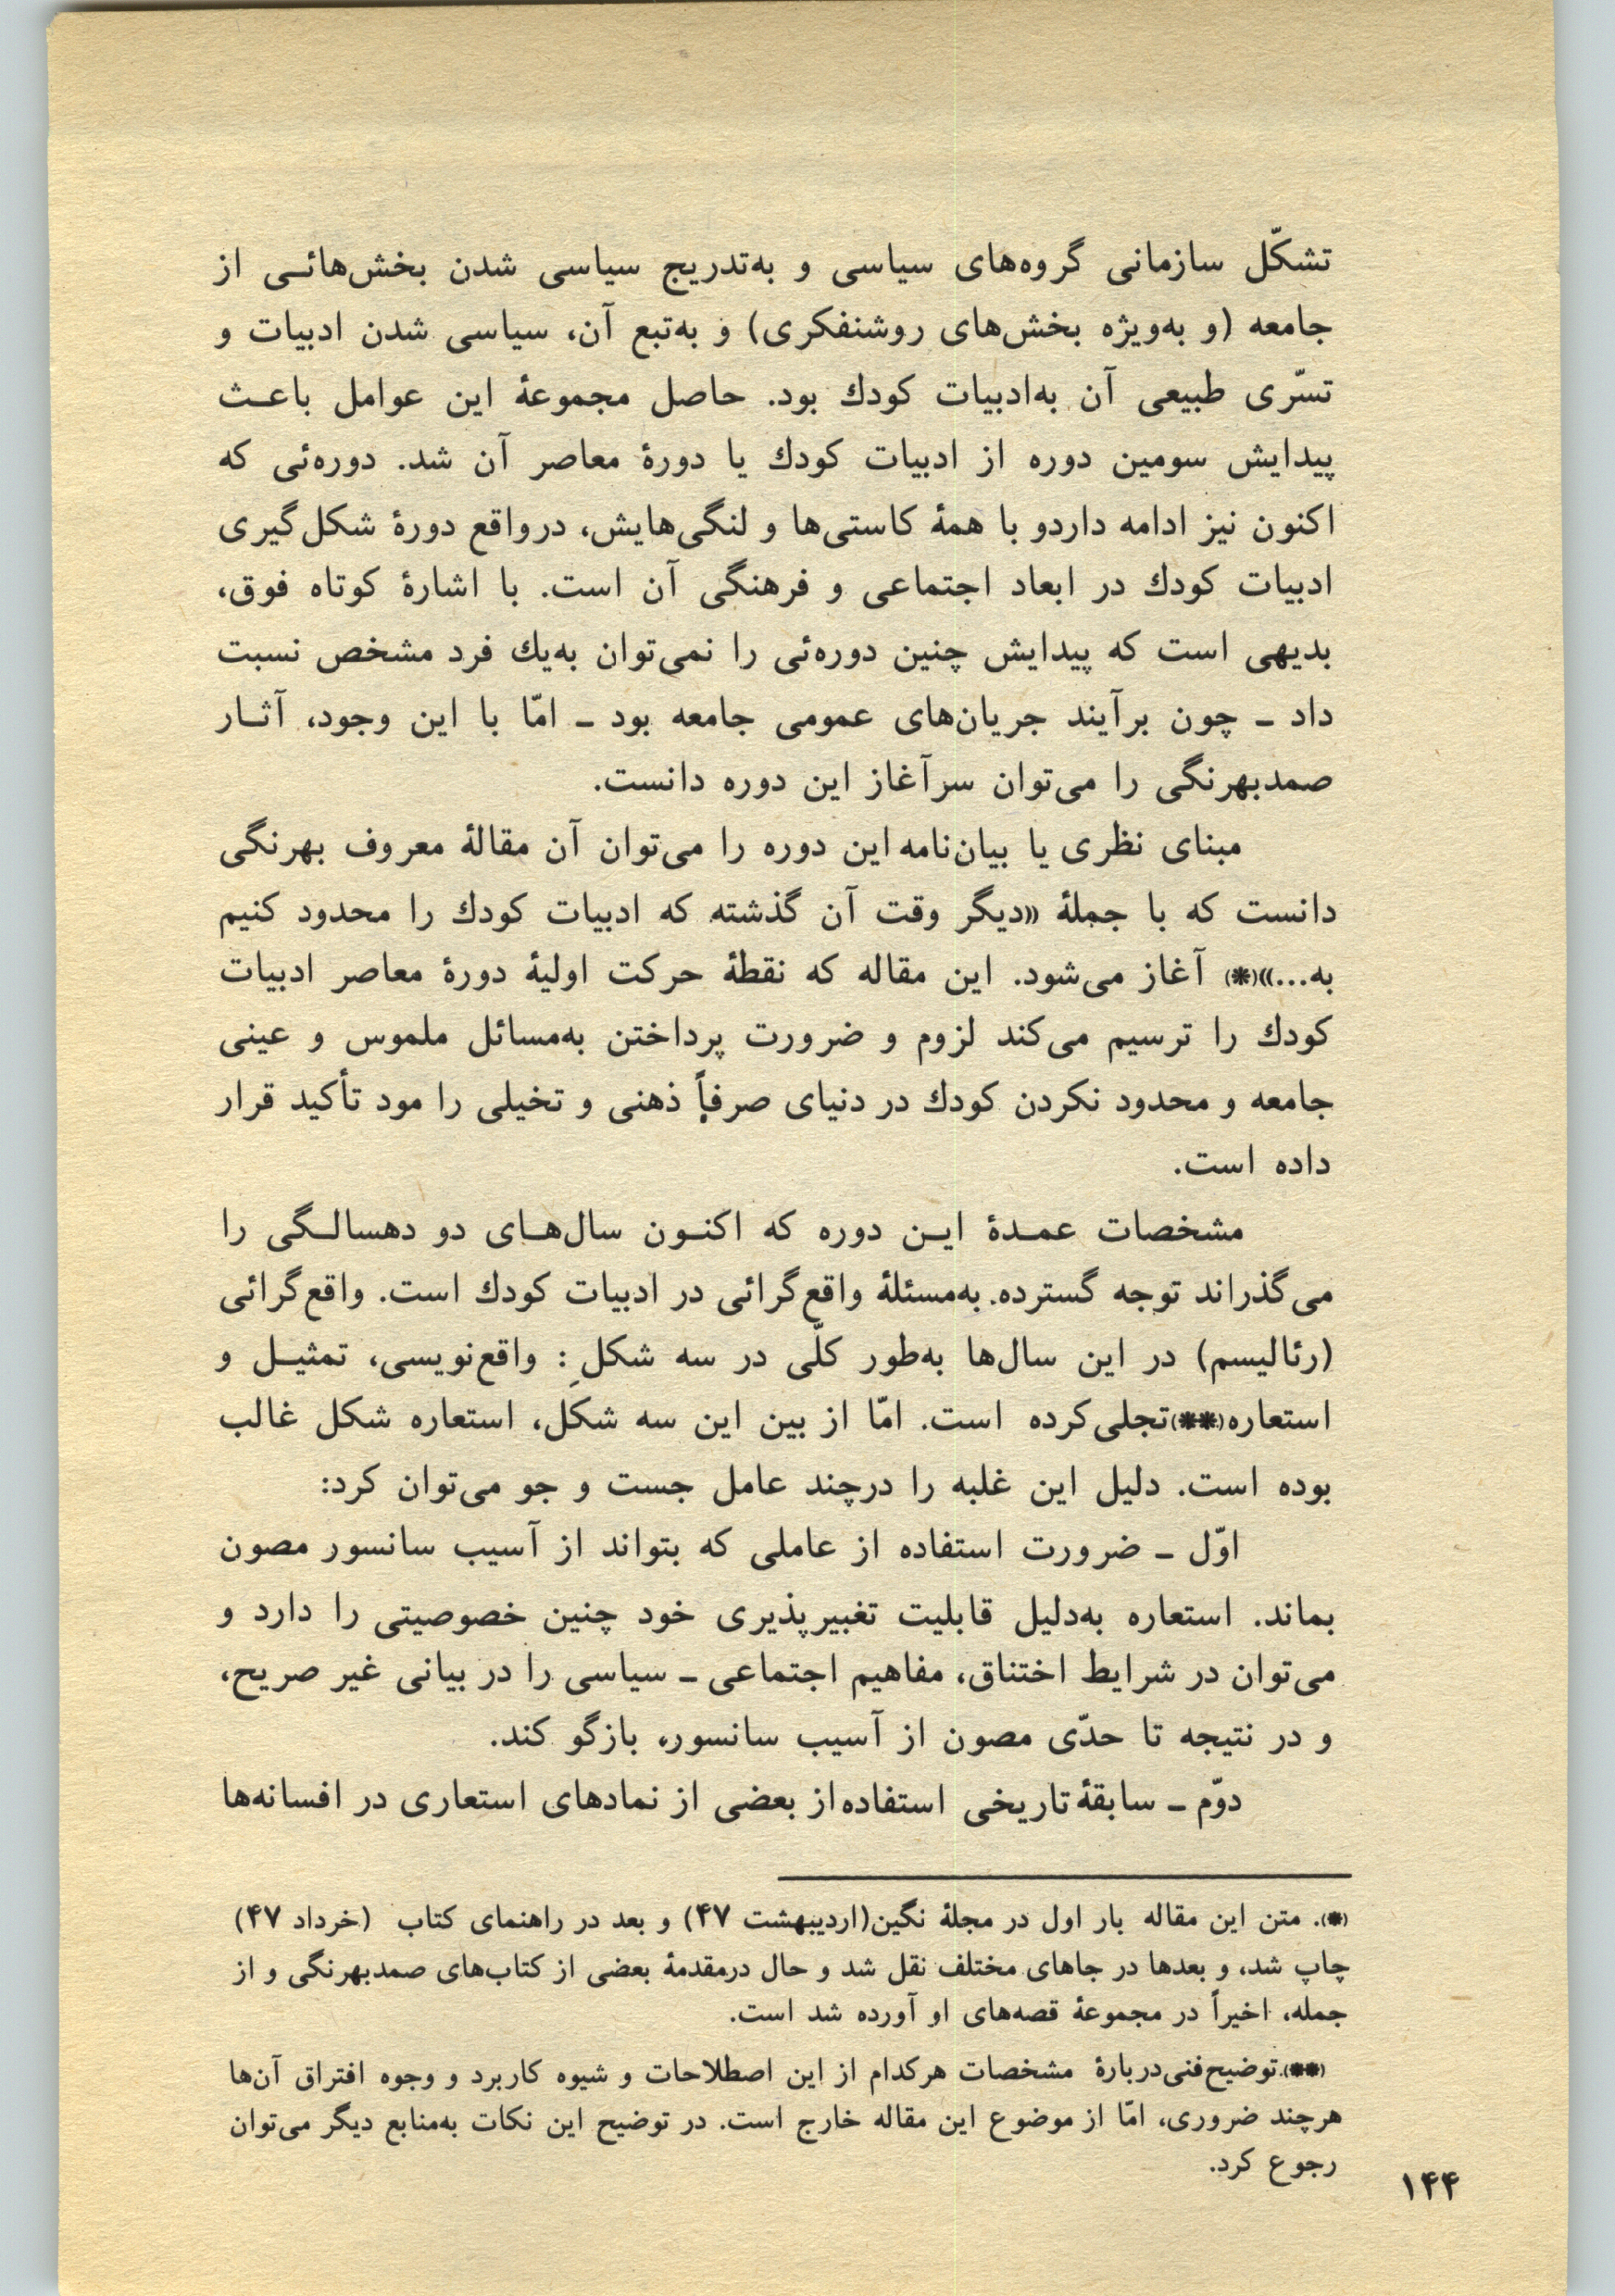 تشکّل سازمانی گروه‌های سیاسی و به‌تدریج سیاسی شدن بخش‌هائی از
جامعه (و به‌ویژه بخش‌های روشنفکری) و به‌تبع آن، سیاسی شدن ادبیات و
تسّری طبیعی آن به‌ادبیات کودك بود. حاصل مجموعهٔ این عوامل باعث
پیدایش سومین دوره از ادبیات کودك یا دورهٔ معاصر آن شد. دوره‌ئی که
اکنون نیز ادامه داردو با همهٔ کاستی‌ها و لنگی‌هایش، درواقع دورهٔ شکل‌گیری
ادبیات کودك در ابعاد اجتماعی و فرهنگی آن است. با اشارهٔ کوتاه فوق،
بدیهی است که پیدایش چنین دوره‌ئی را نمی‌توان به‌یك فرد مشخص نسبت
داد ـ چون برآیند جریان‌های عمومی جامعه بود ـ امّا با این وجود، آثار
صمدبهرنگی را می‌توان سرآغاز این دوره دانست.
مبنای نظری یا بیان‌نامه این دوره را می‌توان آن مقالهٔ معروف بهرنگی
دانست که با جملهٔ «دیگر وقت آن گذشته که ادبیات کودك را محدود کنیم
به...»(*) آغاز می‌شود. این مقاله که نقطهٔ حرکت اولیهٔ دورهٔ معاصر ادبیات
کودك را ترسیم می‌کند لزوم و ضرورت پرداختن به‌مسائل ملموس و عینی
جامعه و محدود نکردن کودك در دنیای صرفاً ذهنی و تخیلی را مود تأکید قرار
داده است.
مشخصات عمدهٔ این دوره که اکنون سال‌های دو دهسالگی را
می‌گذراند توجه گسترده به‌مسئلهٔ واقع‌گرائی در ادبیات کودك است. واقع‌گرائی
(رئالیسم) در این سال‌ها به‌طور کلّی در سه شکل: واقع‌نویسی، تمثیل و
استعاره(**)تجلی‌کرده است. امّا از بین این سه شکل، استعاره شکل غالب
بوده است. دلیل این غلبه را درچند عامل جست و جو می‌توان کرد:
اوّل ـ ضرورت استفاده از عاملی که بتواند از آسیب سانسور مصون
بماند. استعاره به‌دلیل قابلیت تغبیرپذیری خود چنین خصوصیتی را دارد و
می‌توان در شرایط اختناق، مفاهیم اجتماعی ـ سیاسی را در بیانی غیر صریح،
و در نتیجه تا حدّی مصون از آسیب سانسور، بازگو کند.
دوّم ـ سابقهٔ تاریخی استفاده از بعضی از نمادهای استعاری در افسانه‌ها
(*). متن این مقاله بار اول در مجلهٔ نگین(اردیبهشت ۴۷) و بعد در راهنمای کتاب (خرداد ۴۷)
چاپ شد، و بعدها در جاهای مختلف نقل شد و حال درمقدمهٔ بعضی از کتاب‌های صمدبهرنگی و از
جمله، اخیراً در مجموعهٔ قصه‌های او آورده شد است.
(**).توضیح‌فنی‌دربارهٔ مشخصات هرکدام از این اصطلاحات و شیوه کاربرد و وجوه افتراق آن‌ها
هرچند ضروری، امّا از موضوع این مقاله خارج است. در توضیح این نکات به‌منابع دیگر می‌توان
رجوع کرد.
۱۴۴